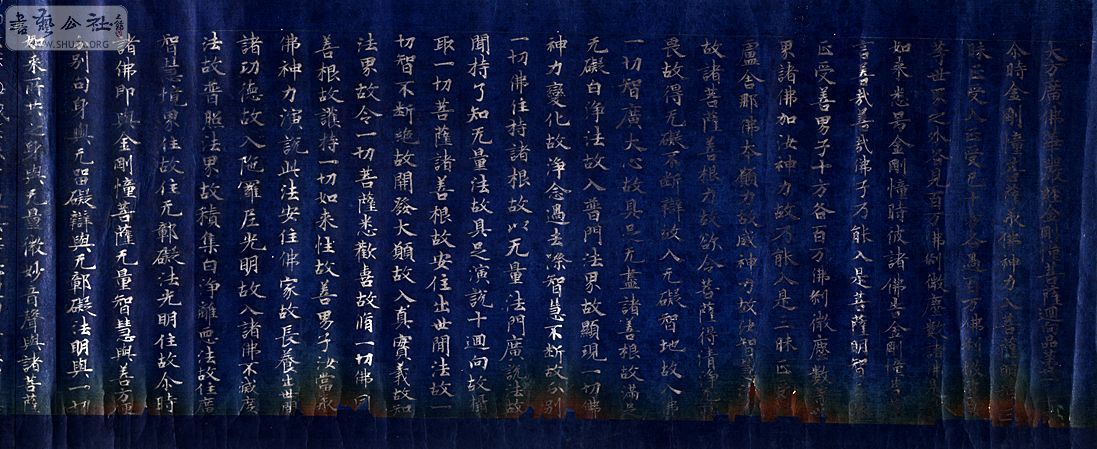 大方廣佛華嚴經金剛幢菩薩迴向品第
尒時金剛幢菩薩承佛神力入菩薩明智三
昧正受入正受已十方各過百万佛刹微塵
等世界之外各見百万佛刹微塵數諸佛是
如来悉号金剛幢時彼諸佛告金剛幢菩
言善哉善哉佛子乃能入是菩薩明智
正受善男子十方各百万佛刹微塵數等
界諸佛加汝神力故乃能入是三昧正受
盧舍那佛本願力故威神力故汝智慧
故諸菩薩善根力故欲令菩薩得清淨无
畏故得无礙不断辯故入无礙智地故入佛
一切智廣大心故具足无盡諸善根故滿足
无礙白淨法故入普門法界故顯現一切佛
神力變化故淨念過去際智慧不断故分別
一切佛住持諸根故以无量法門廣說法故
聞持了知无量法故具足演說十迴向故攝
取一切菩薩諸善根故安住出世間法故一
切智不断絶故開發大願故入真實義故知
法界故令一切菩薩悉歡喜故脩一切佛同
善根故護持一切如来性故善男子汝當承
佛神力演說此法安住佛家故長養出世間
諸功徳故入陁羅尼光明故入諸佛不壊
法故普照法界故積集白淨離惡法故住廣
智慧境界住故住无鄣礙法光明住故尒時
諸佛即與金剛幢菩薩无量智慧與善方便
分別句身與无留礙辯與无鄣礙法明與一切
如来所共之身與无量微妙音聲與諸菩薩
書藝公社
WWW.SHU0.ORG